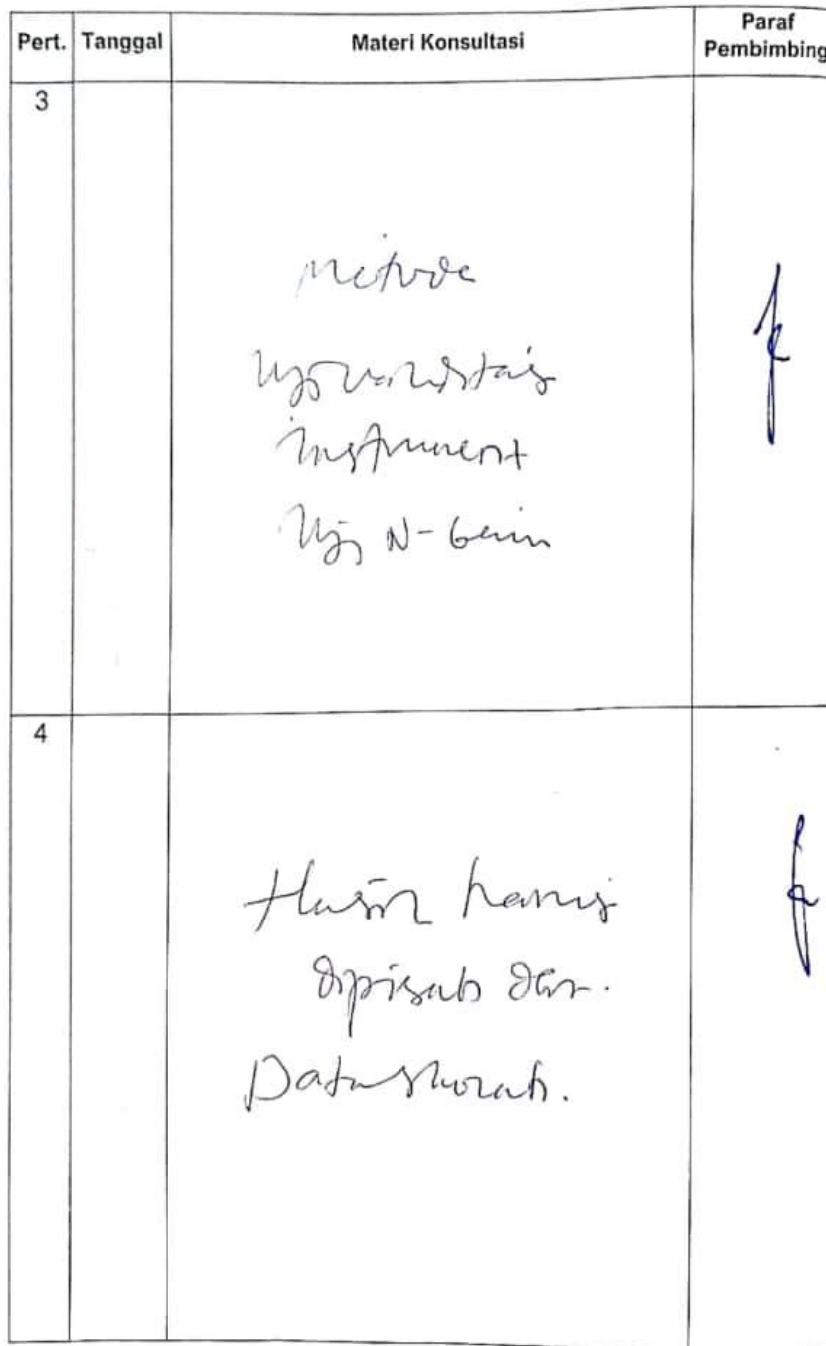 Pert. Tanggal Materi Konsultasi Paraf Pembimbing
3
Metode
Uji validitas
Instrument
Uji N-Gain
4
Hasil harus
dipisah dari
Data